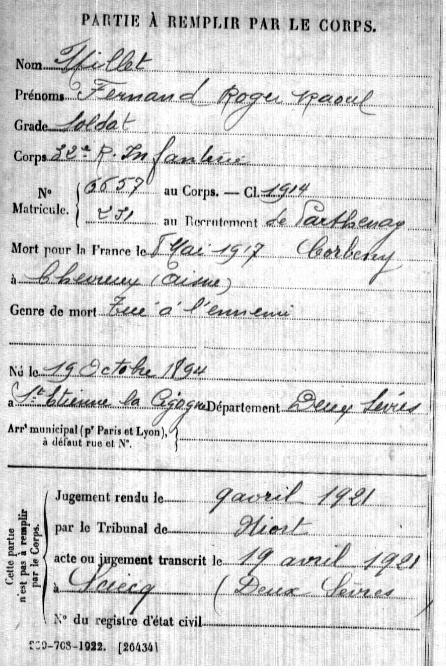 PARTIE À REMPLIR PAR LE CORPS.
Nom Millet
Prénoms Fernand Roger Raoul
Grade Soldat
Corps 32e R. Infanterie
No Matricule. 6657 au Corps. — Cl. 1914
231 au Recrutement de Parthenay
Mort pour la France le Mai 1917 Corbeny
à Chevreux (Aisne)
Genre de mort Tué à l'ennemi
Né le 19 Octobre 1894
à St Etienne la Cigogne Département Deux Sèvres
Arrt municipal (pr Paris et Lyon),
à défaut rue et No.
Cette partie n'est pas à remplir par le Corps.
Jugement rendu le 9 avril 1921
par le Tribunal de Niort
acte ou jugement transcrit le 19 avril 1921
à Sciecq (Deux Sèvres)
No du registre d'état civil
-708-1922. [26434]